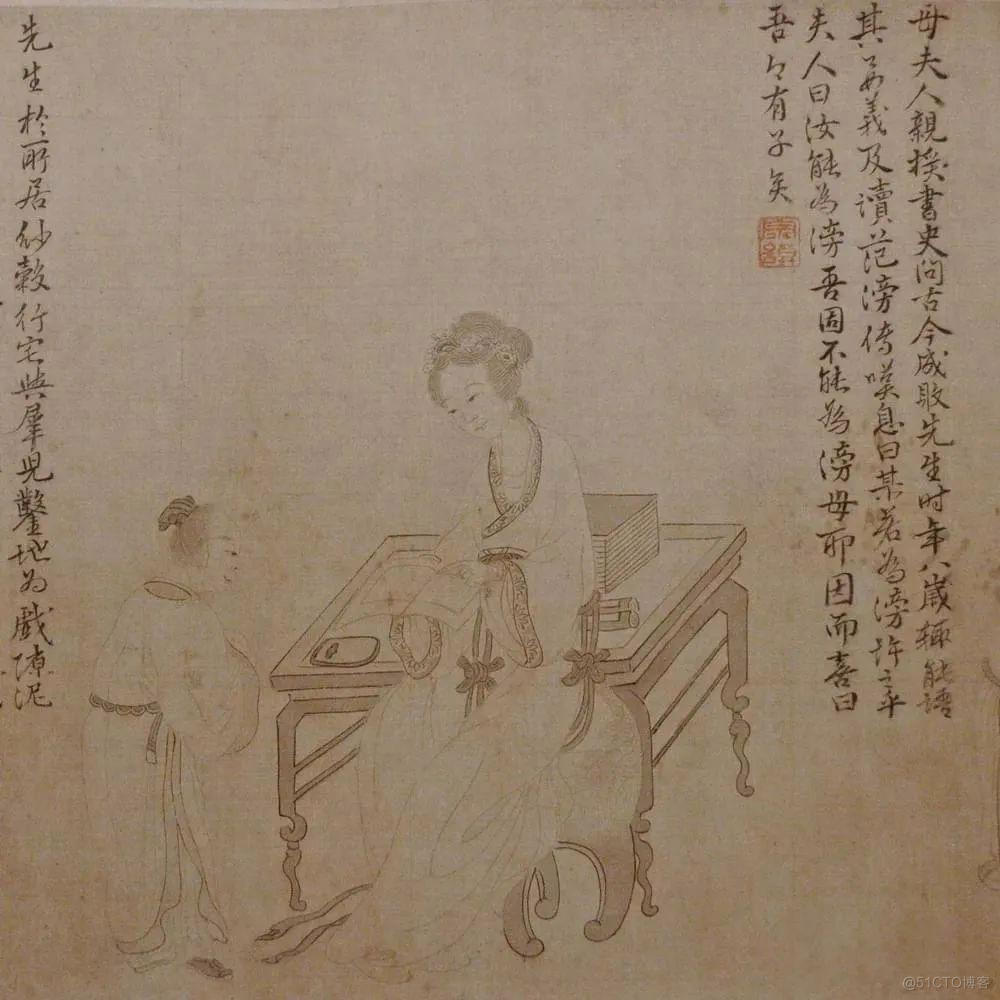 母夫人親授書史問古今成敗先生时年八歲輙能語
其要義及讀范滂傳嘆息曰某若為滂許之乎
夫人曰汝能為滂吾固不能為滂母耶因而喜曰
吾有子矣
先生於所居紗縠行宅與羣兒鑿地为戲泥
@51CTO博客